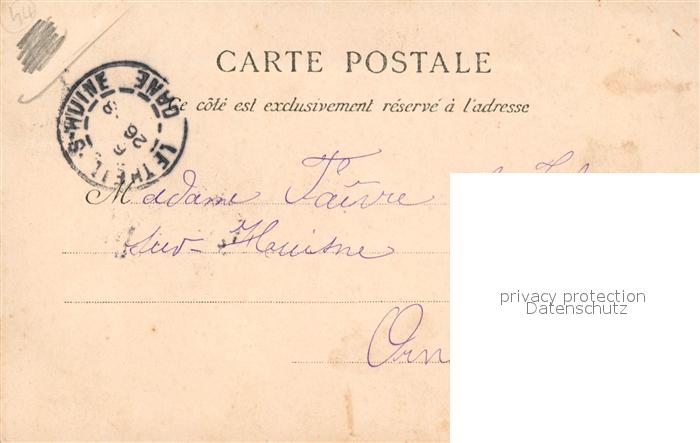 44
CARTE POSTALE
Ce côté est exclusivement réservé à l'adresse
LE THEIL-S-HUINE ORNE
26
Madame Faivre
sur-Huisne
privacy protection
Datenschutz
Orn